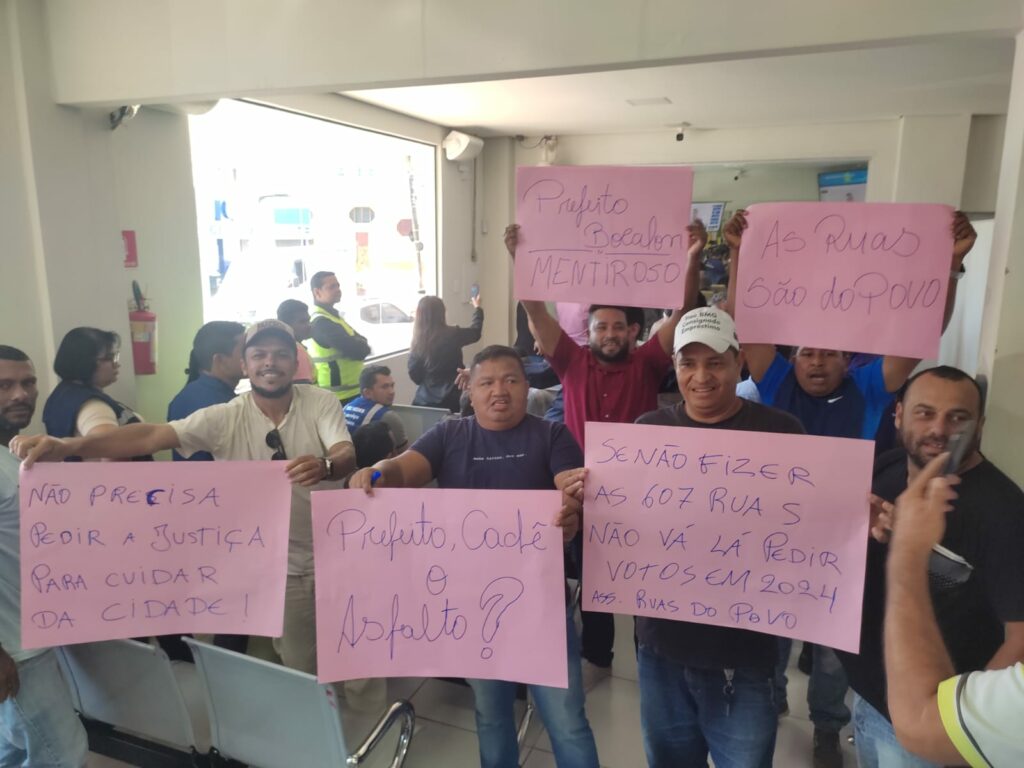 Prefeito
Bocalom
MENTIROSO
AS RUAS
São do POVO
NÃO PRECISA
PEDIR A JUSTIÇA
PARA CUIDAR
DA CIDADE!
Prefeito, Cadê
O
Asfalto?
SE NÃO FIZER
AS 607 RUAS
NÃO VÁ LÁ PEDIR
VOTOS EM 2024
ASS. RUAS DO POVO
BMG
Consignado
Empréstimo